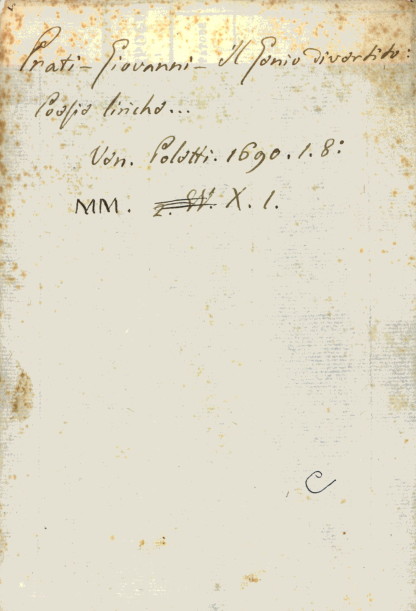 Prati - Giovanni - il Genio divertito:
Poesie liriche...
Ven. Poletti. 1690. 1. 8:
MM. X. 1.
C